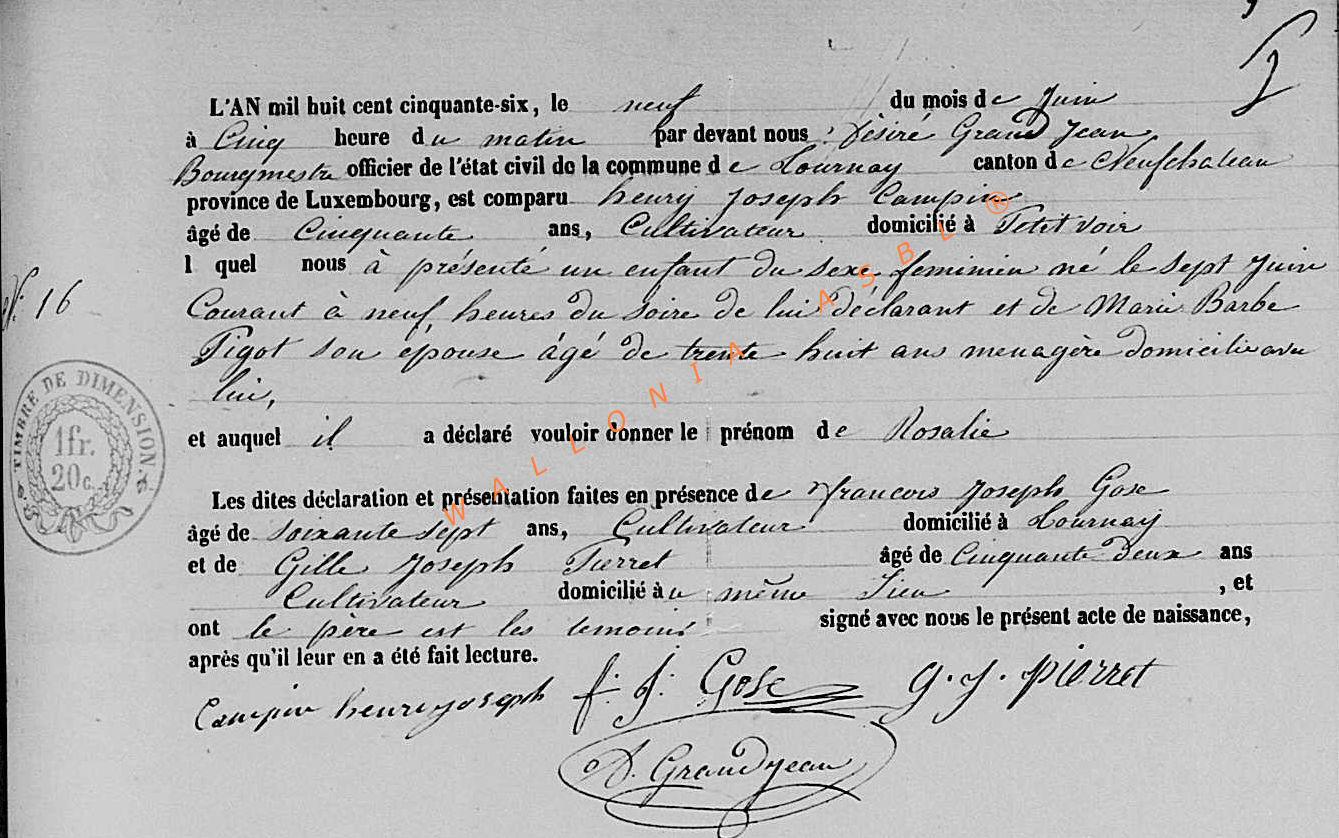 L'AN mil huit cent cinquante-six, le neuf du mois de Juin
à Cinq heure du matin par devant nous Désiré Grand Jean,
Bourgmestre officier de l'état civil de la commune de Tournay canton de Neufchateau
province de Luxembourg, est comparu henry Joseph Campin
âgé de Cinquante ans, Cultivateur domicilié à Petit voir
l quel nous à présenté un enfant du sexe feminien né le sept Juin
N: 16
Courant à neuf heures du soire de lui déclarant et de Marie Barbe
Pigot son épouse âgé de trente huit ans menagère domicilie avec
lui,
et auquel il a déclaré vouloir donner le prénom de Rosalie
TIMBRE DE DIMENSION.
1 fr.
20 c.
Les dites déclaration et présentation faites en présence de francois Joseph Gose
âgé de soixante sept ans, Cultivateur domicilié à Tournay
et de Gille Joseph Pierret âgé de Cinquante deux ans
Cultivateur domicilié au même Lieu, et
ont le père est les temoins signé avec nous le présent acte de naissance,
après qu'il leur en a été fait lecture.
Campin henri joseph f. j. Gose g. j. pierret
D. Grandjean
WALLONIA ASBL ®